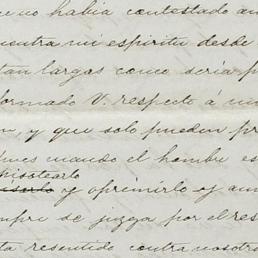 no habia contestado an
cuentra mi espiritu desde
tan largas como seria p
formado V. respecto á mi
n, y que solo pueden pr
nes cuando el hombre es
pisotearlo
y oprimirlo y am
mpre se juzga por el res
ta resentido contra nosotro